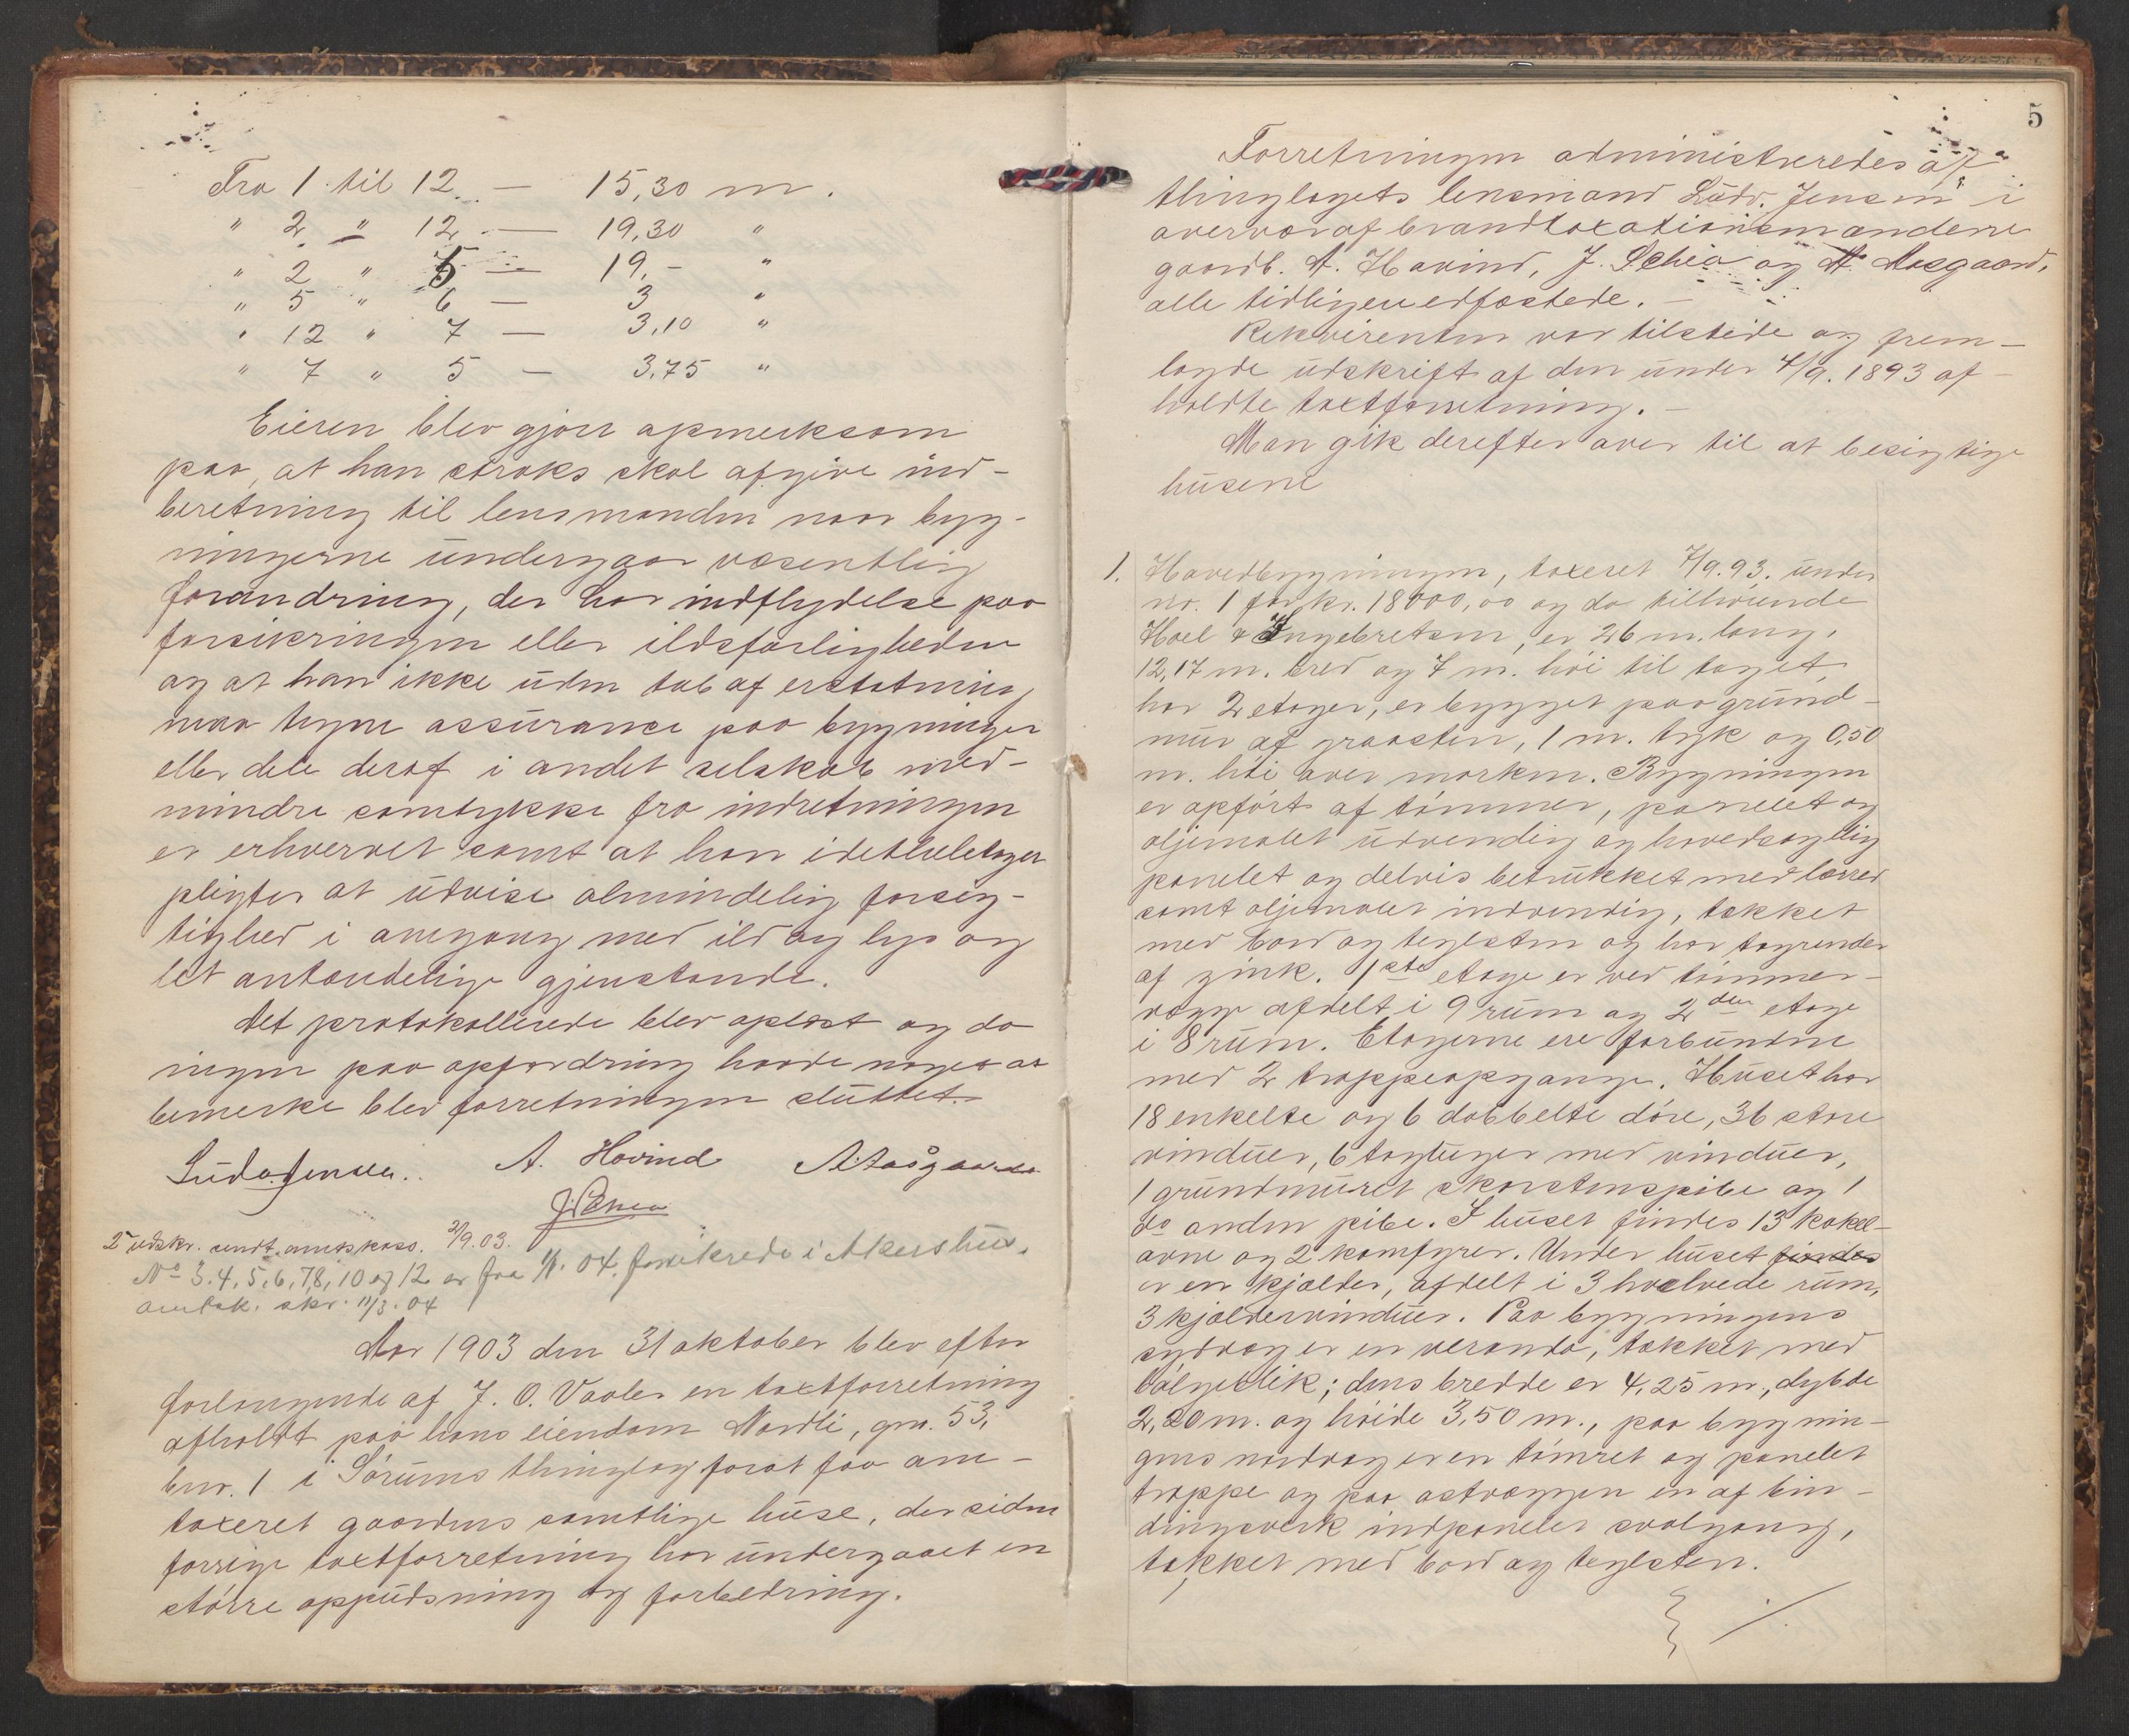 Fra 1 til 12 — 15,30 m.
" 2 " 12 — 19,30 "
" 2 " 5 — 19,- "
" 5 " 6 — 3 "
" 12 " 7 — 3,10 "
" 7 " 5 — 3,75 "
Eieren blev gjort opmerksom
paa, at han straks skal afgive ind-
beretning til lensmanden naar byg-
ningerne undergaar væsentlig
forandring, der har indflydelse paa
forsikringen eller ildsfarligheden
og at han ikke uden tab af erstatning
maa tegne assurance paa bygninger
eller dele deraf i andet selskab med-
mindre samtykke fra indretningen
er erhvervet samt at han idethele tager
pligter at udvise almindelig forsig-
tighed i omgang med ild og lys og
let antændelige gjenstande.
Det protokollerede blev oplæst og da
ingen paa opfordring havde noget at
bemerke blev forretningen sluttet.
Ludv. Jensen. A. Hovind A. Aasgaard
J. Schea
2 udskr. sendt amtskass. 2/9.03.
No 3.4,5,6,7,8,10 og 12 er fra 1/1. 04. forsikrede i Akershus.
amtsk. skr. 11/3.04
Aar 1903 den 31 oktober blev efter
forlangende af J. O. Vaaler en taxtforretning
afholdt paa hans eiendom Nordli, gnr. 53,
bnr. 1 i Sørums thinglag forat faa om-
taxeret gaardens samtlige huse, der siden
forrige taxtforretning har undergaaet en
større oppudsning og forbedring.
5
Forretningen administreredes af
thinglagets lensmand Ludv. Jensen i
overvær af brandtaxationsmændene
gaardb. A. Hovind, J. Schea og A. Aasgaard,
alle tidligere edfæstede. —
Rekvirenten var tilstede og frem-
lagde udskrift af den under 7/9. 1893 af-
holdte taxtforretning. —
Man gik derefter over til at besigtige
husene
1. Hovedbygningen, taxeret 7/9.93. under
no. 1 for kr. 18000,00 og da tilhørende
Hoel & Ingebretsen, er 26 m. lang,
12,17 m. bred og 7 m. høi til taget,
har 2 etager, er bygget paa grund-
mur af graasten, 1 m. tyk og 0,50
m. høi over marken. Bygningen
er opført af tømmer, panelet og
oljemalet udvendig og hovedsagelig
panelet og delvis betrukket med lærred
samt oljemalet indvendig, tækket
med bord og teglsten og har tagrender
af zink. 1ste etage er ved tømmer-
vægge afdelt i 9 rum og 2den etage
i 8 rum. Etagerne ere forbundne
med 2 trappeopgange. Huset har
18 enkelte og 6 dobbelte døre, 36 store
vinduer, 6 tagluger med vinduer,
1 grundmuret skorstenspibe og 1
do anden pibe. I huset findes 13 kakel-
ovne og 2 komfyrer. Under huset findes
er en kjælder, afdelt i 3 hvælvede rum,
3 kjældervinduer. Paa bygningens
sydvæg er en veranda, tækket med
bølgeblik; dens bredde er 4,25 m., dybde
2,20 m. og høide 3,50 m., paa bygnin-
gens nordvæg er en tømret og panelet
trappe og paa østvæggen en af bin-
dingsverk indpanelet svalgang,
tækket med bord og teglsten.